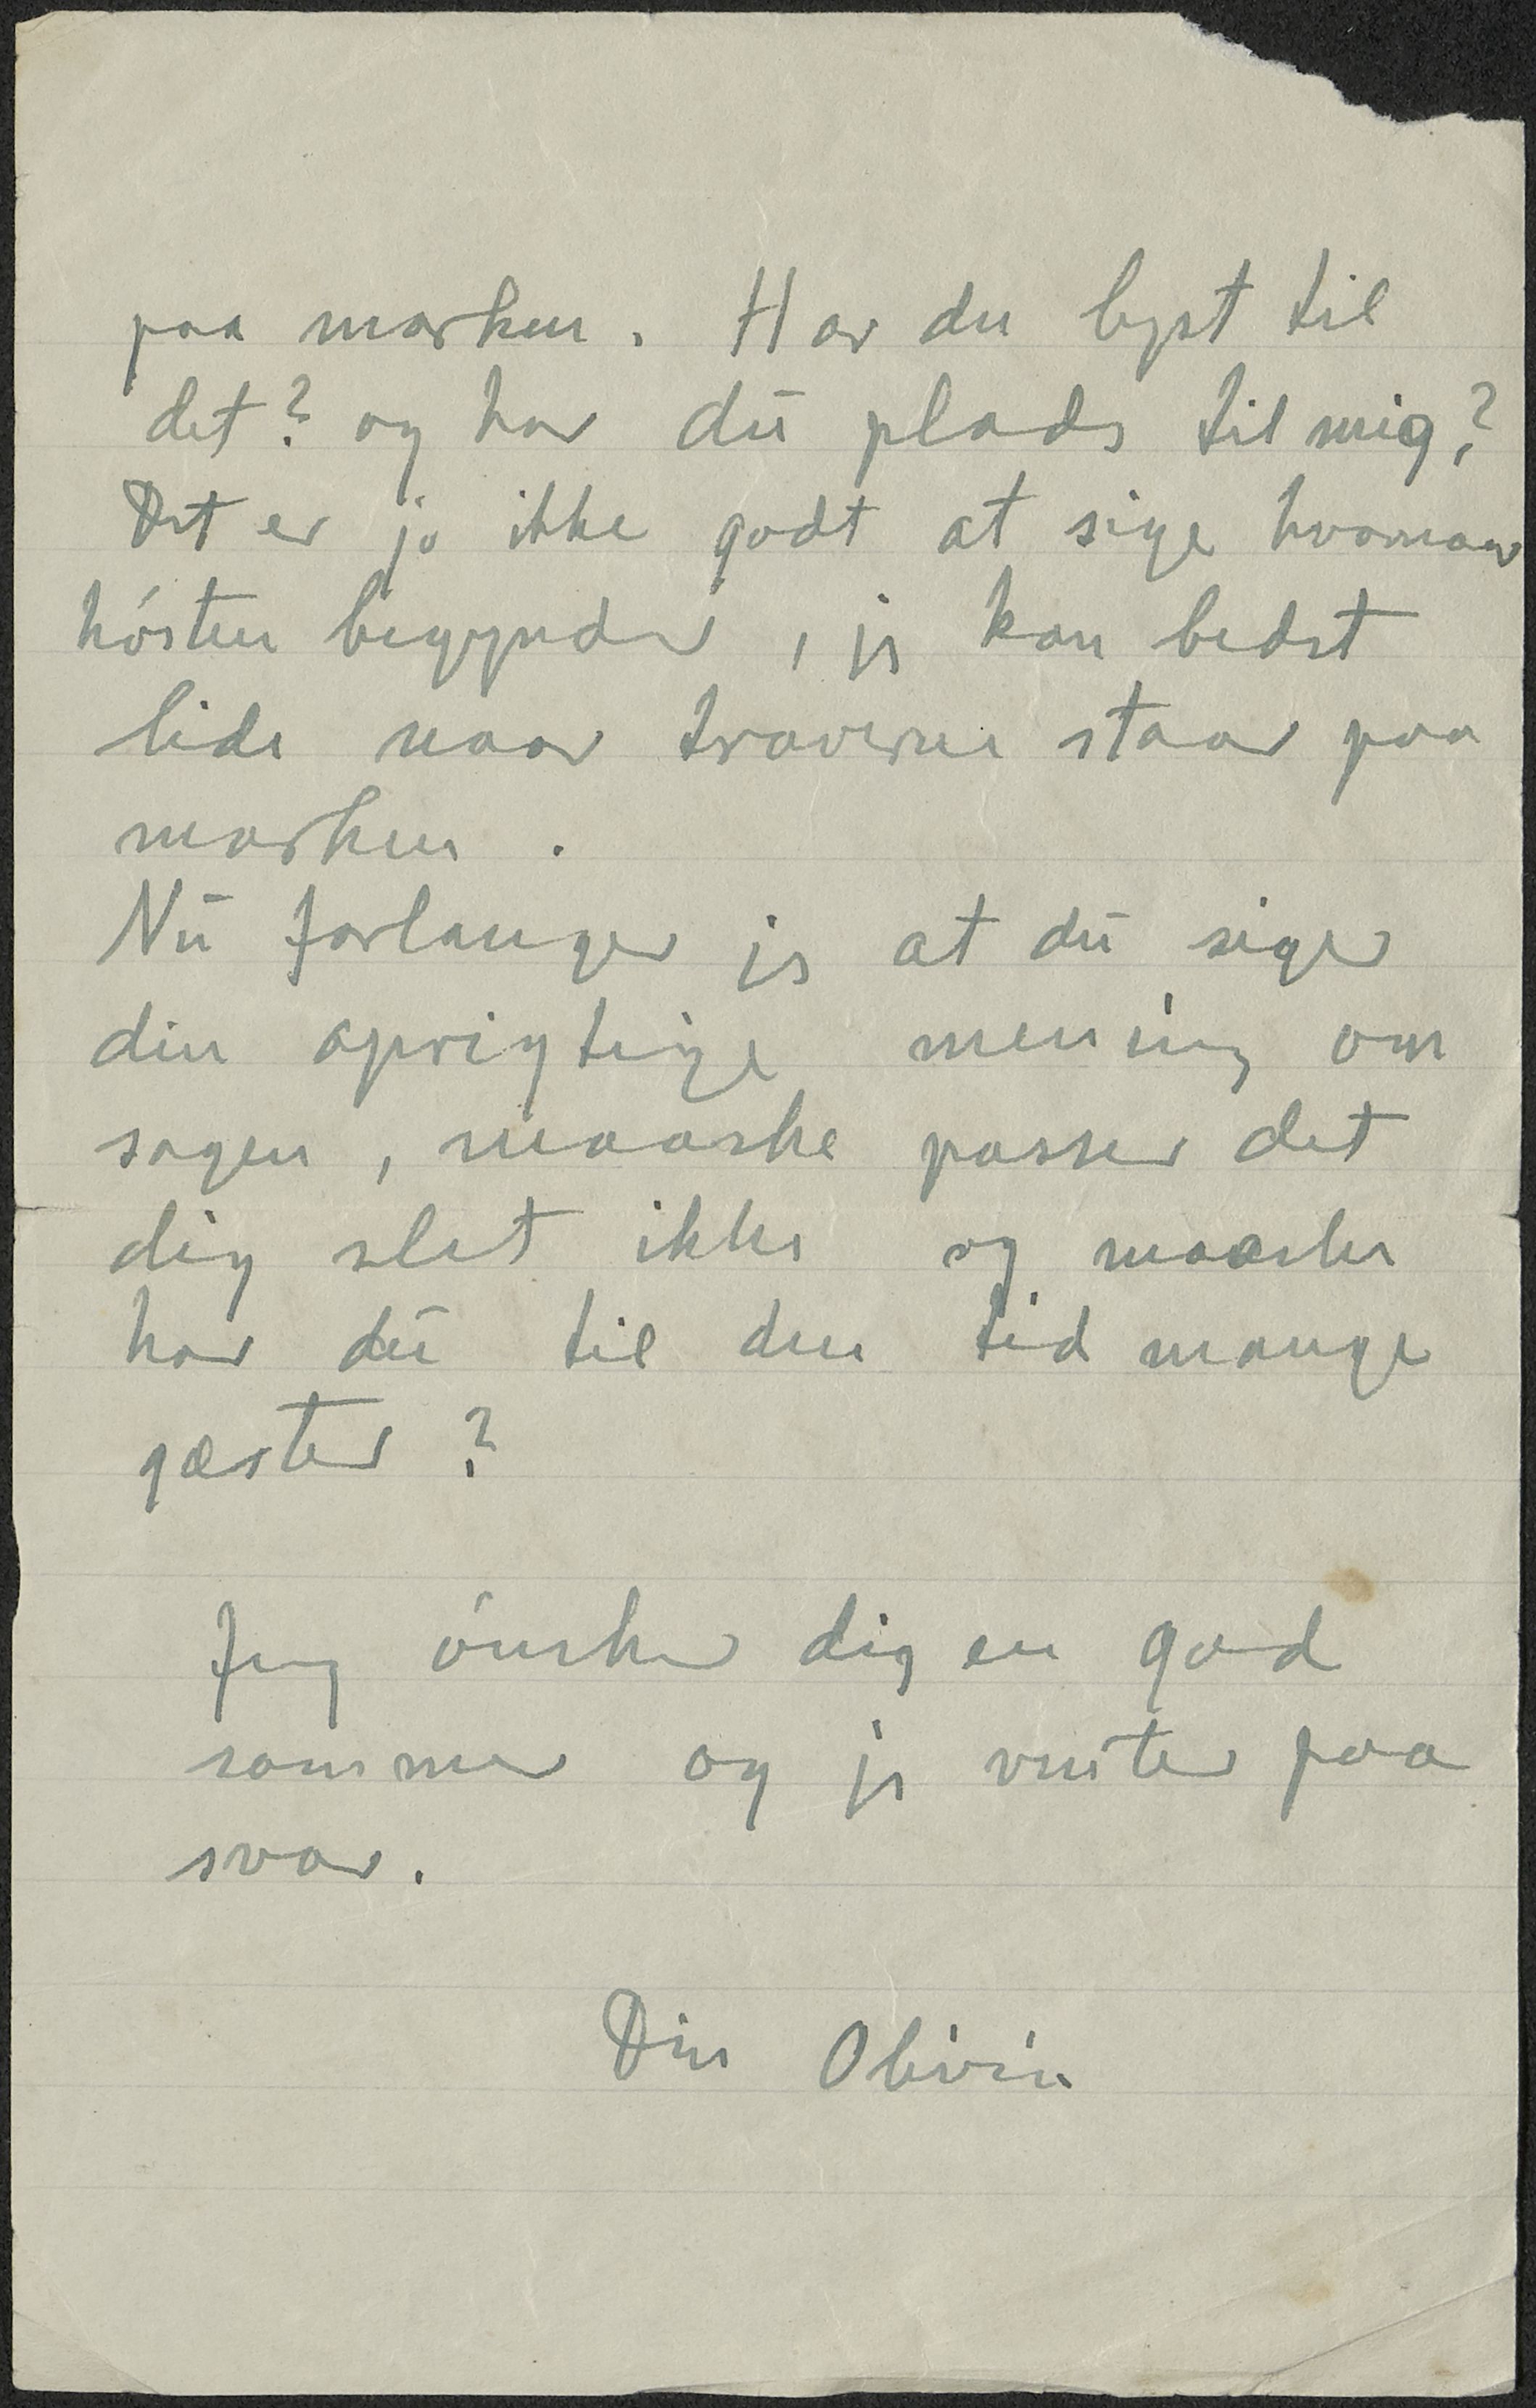 paa marken. Har du lyst til
det? og har dū plads til mig?
Det er jo ikke godt at sige hvornaar
hösten begynder, jeg kan bedst
lide naar traverne staar paa
marken.
Nū forlanger jeg at dū siger
din oprigtige mening om
sagen, maaske passer det
dig slet ikke og maaske
har dū til den tid mange
gæster?
Jeg önsker dig en god
sommer og jeg venter paa
svar.
Din Olivia